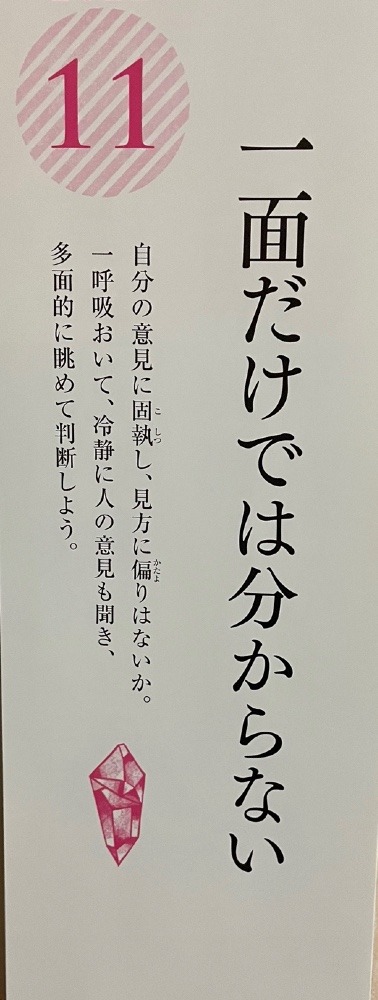 11
一面だけでは分からない
自分の意見に固執し、見方に偏りはないか。
こしつ
かたよ
一呼吸おいて、冷静に人の意見も聞き、
多面的に眺めて判断しよう。